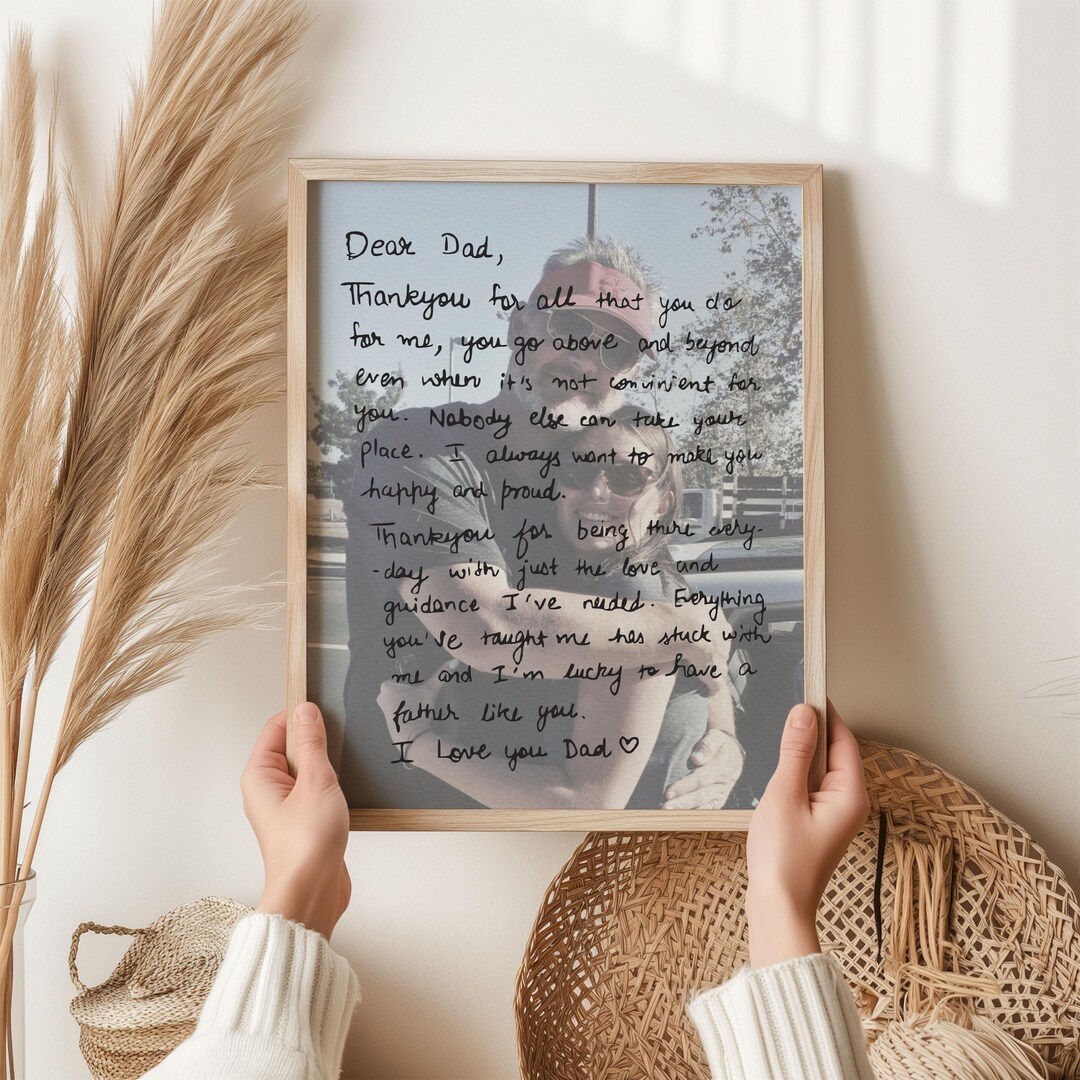 Dear Dad,
Thankyou for all that you do
for me, you go above and beyond
even when it's not convinient for
you. Nobody else can take your
place. I always want to make you
happy and proud.
Thankyou for being there every-
-day with just the love and
guidance I've needed. Everything
you've taught me has stuck with
me and I'm lucky to have a
father like you.
I Love you Dad ♡